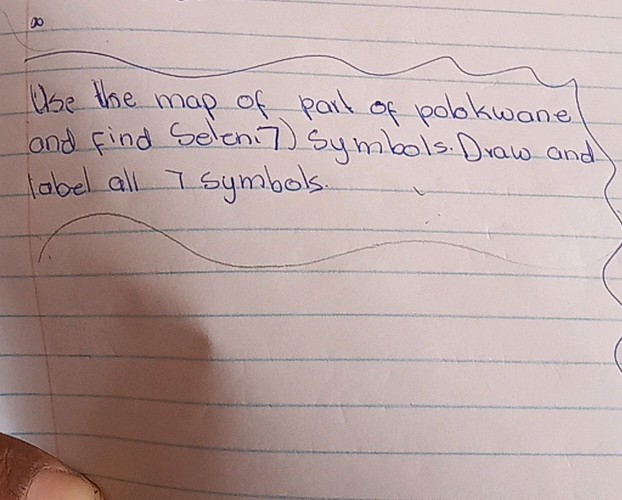 Use the map of part of polokwane
and find Seleni7) Symbols. Draw and
label all 7 symbols.